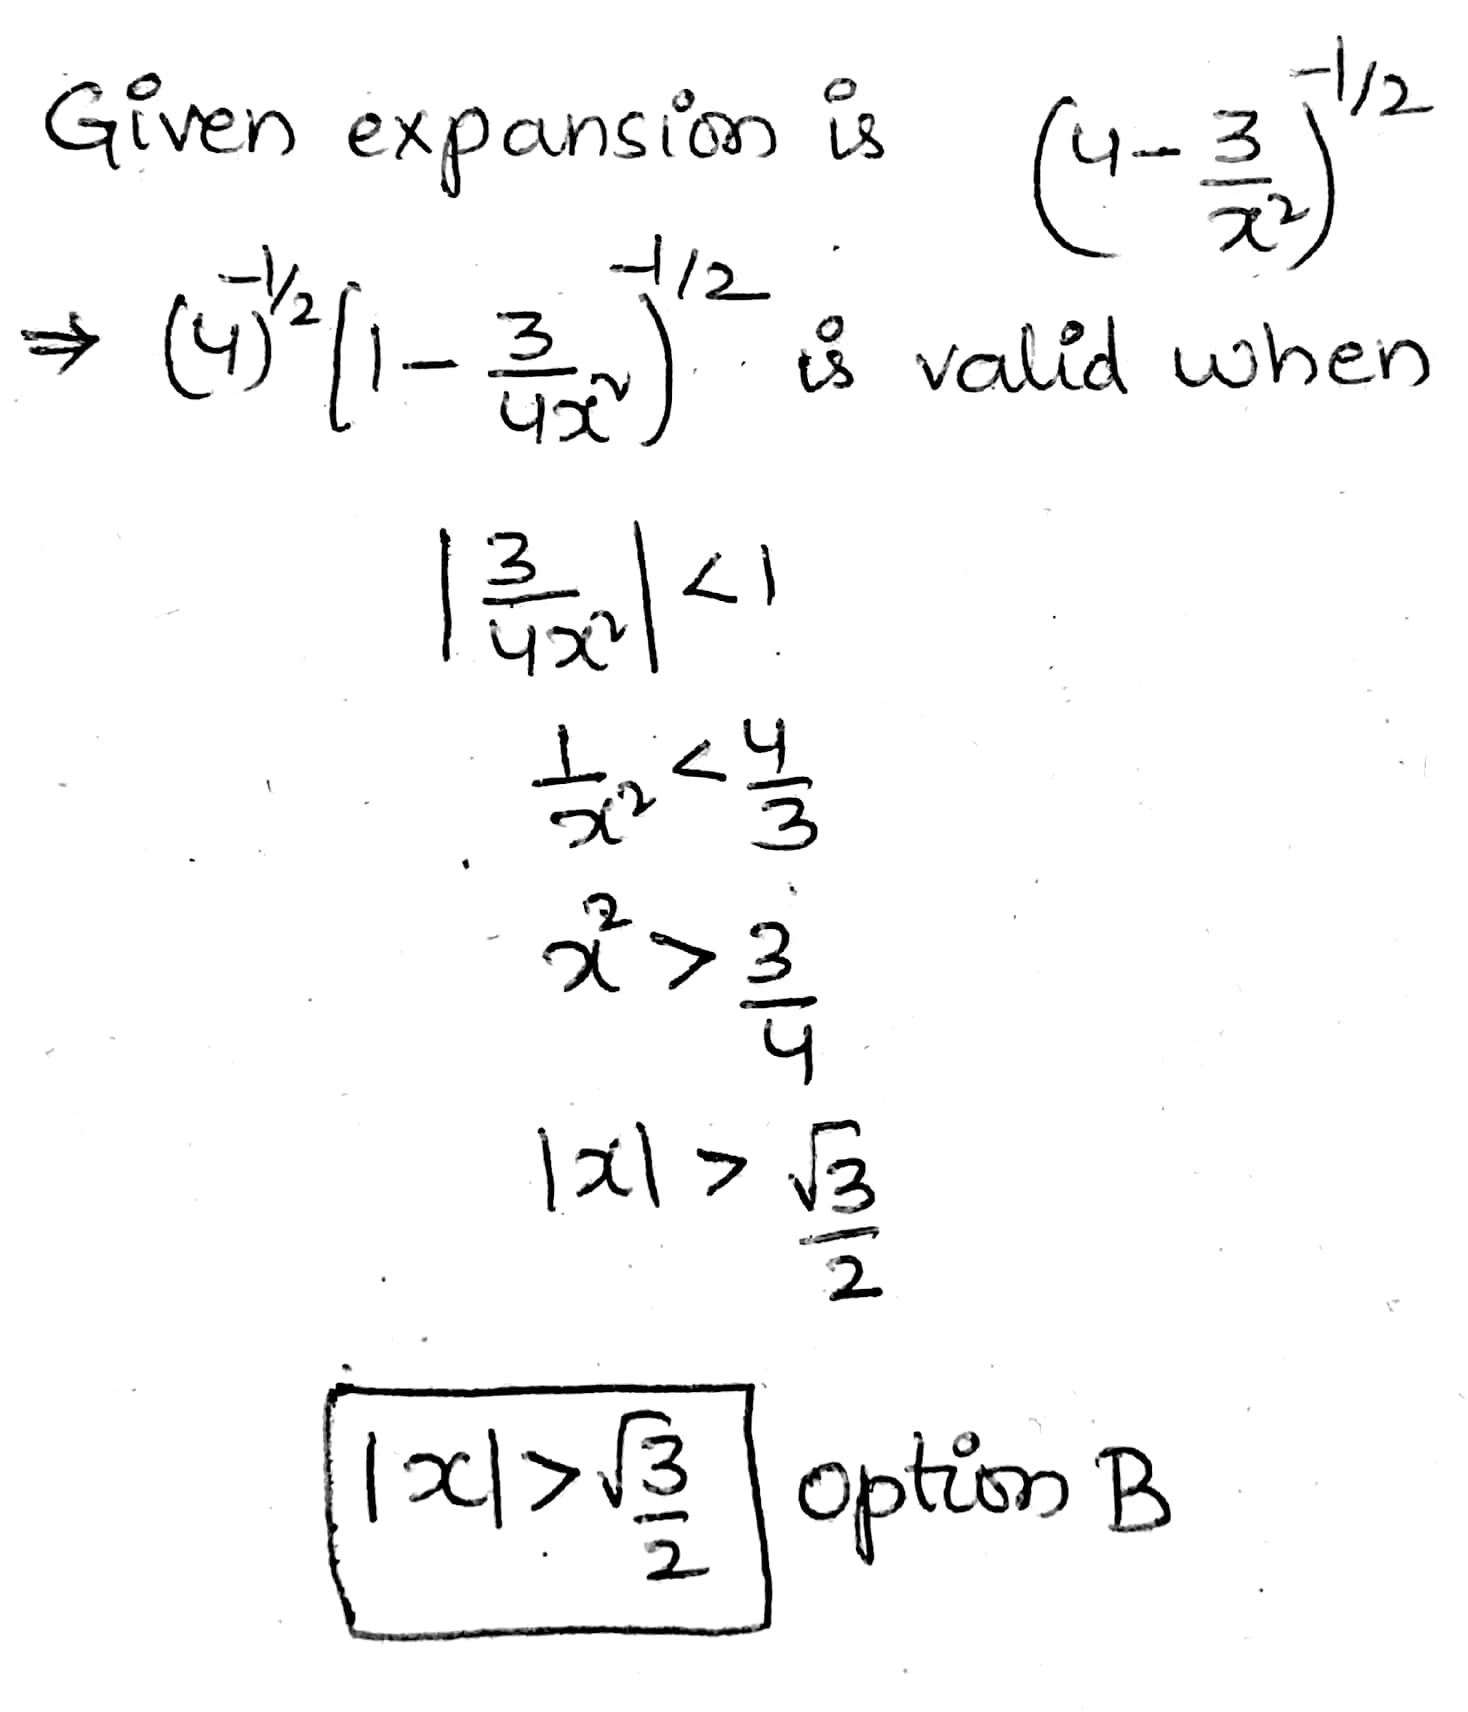 Given expansion is (4 - 3/x²)^(-1/2)
⇒ (4)^(-1/2) (1 - 3/4x²)^(-1/2) is valid when
|3/4x²| < 1
1/x² < 4/3
x² > 3/4
|x| > √3/2
|x| > √3/2 option B